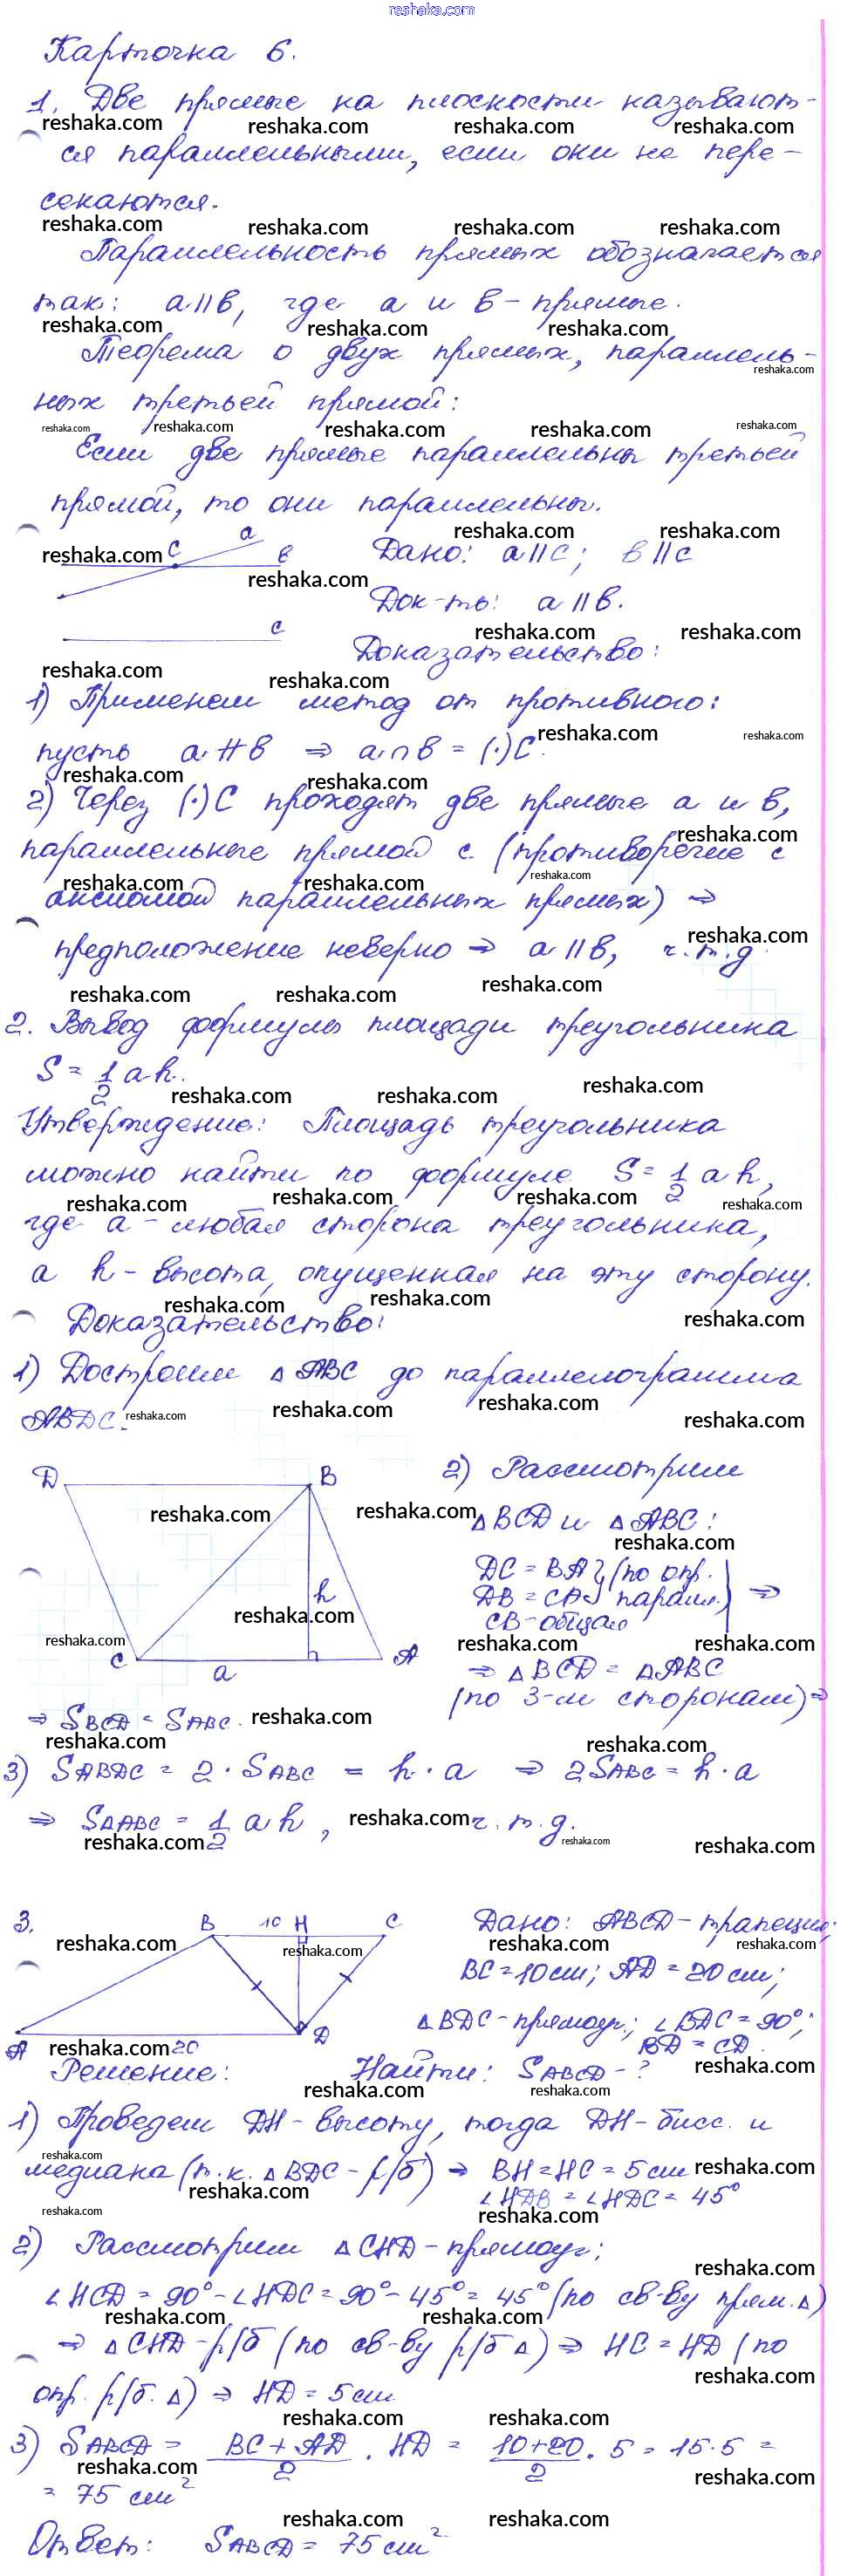 reshaka.com
Карточка 6.
1. Две прямые на плоскости называют-
ся параллельными, если они не пере-
секаются.
Параллельность прямых обозначается
так: a||b, где a и b - прямые.
Теорема о двух прямых, параллель-
ных третьей прямой:
Если две прямые параллельны третьей
прямой, то они параллельны.
C a b
c
Дано: a||c; b||c
Док-ть: a||b.
Доказательство:
1) Применем метод от противного:
пусть a∦b ⇒ a∩b = (·)C.
2) Через (·)C проходят две прямые a и b,
параллельные прямой c (противоречие с
аксиомой параллельных прямых) ⇒
предположение неверно ⇒ a||b, ч.т.д.
2. Вывод формулы площади треугольника
S = 1/2 a·h.
Утверждение: Площадь треугольника
можно найти по формуле S = 1/2 a h,
где a - любая сторона треугольника,
а h - высота, опущенная на эту сторону.
Доказательство:
1) Достроим △ABC до параллелограмма
ABDC.
D B
h
C a A
2) Рассмотрим
△BCD и △ABC:
DC = BA } (по опр.
DB = CA } паралл.)
CB - общая ⇒
⇒ △BCD = △ABC
(по 3-м сторонам) ⇒
⇒ SBCD = SABC.
3) SABDC = 2 · SABC = h · a ⇒ 2SABC = h · a
⇒ S△ABC = 1/2 a h, ч.т.д.
3.
B 10 H C
A 20 D
Дано: ABCD - трапеция;
BC = 10 см; AD = 20 см;
△BDC - прямоуг.; ∠BDC = 90°;
BD = CD.
Найти: SABCD - ?
Решение:
1) Проведем DH - высоту, тогда DH - бисс. и
медиана (т.к. △BDC - р/б) ⇒ BH = HC = 5 см
∠HDB = ∠HDC = 45°
2) Рассмотрим △CHD - прямоуг;
∠HCD = 90° - ∠HDC = 90° - 45° = 45° (по св-ву прям.△)
⇒ △CHD - р/б (по св-ву р/б △) ⇒ HC = HD (по
опр. р/б. △) ⇒ HD = 5 см
3) SABCD = (BC + AD)/2 · HD = (10+20)/2 · 5 = 15·5 =
= 75 см²
Ответ: SABCD = 75 см²